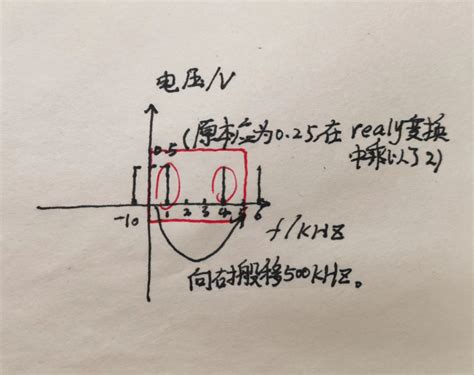 电压/V
0.5 (原本应为0.25,在realy变换
中乘以了2)
-1 0 1 2 3 4 5 6 f/kHZ
向右搬移500KHZ。